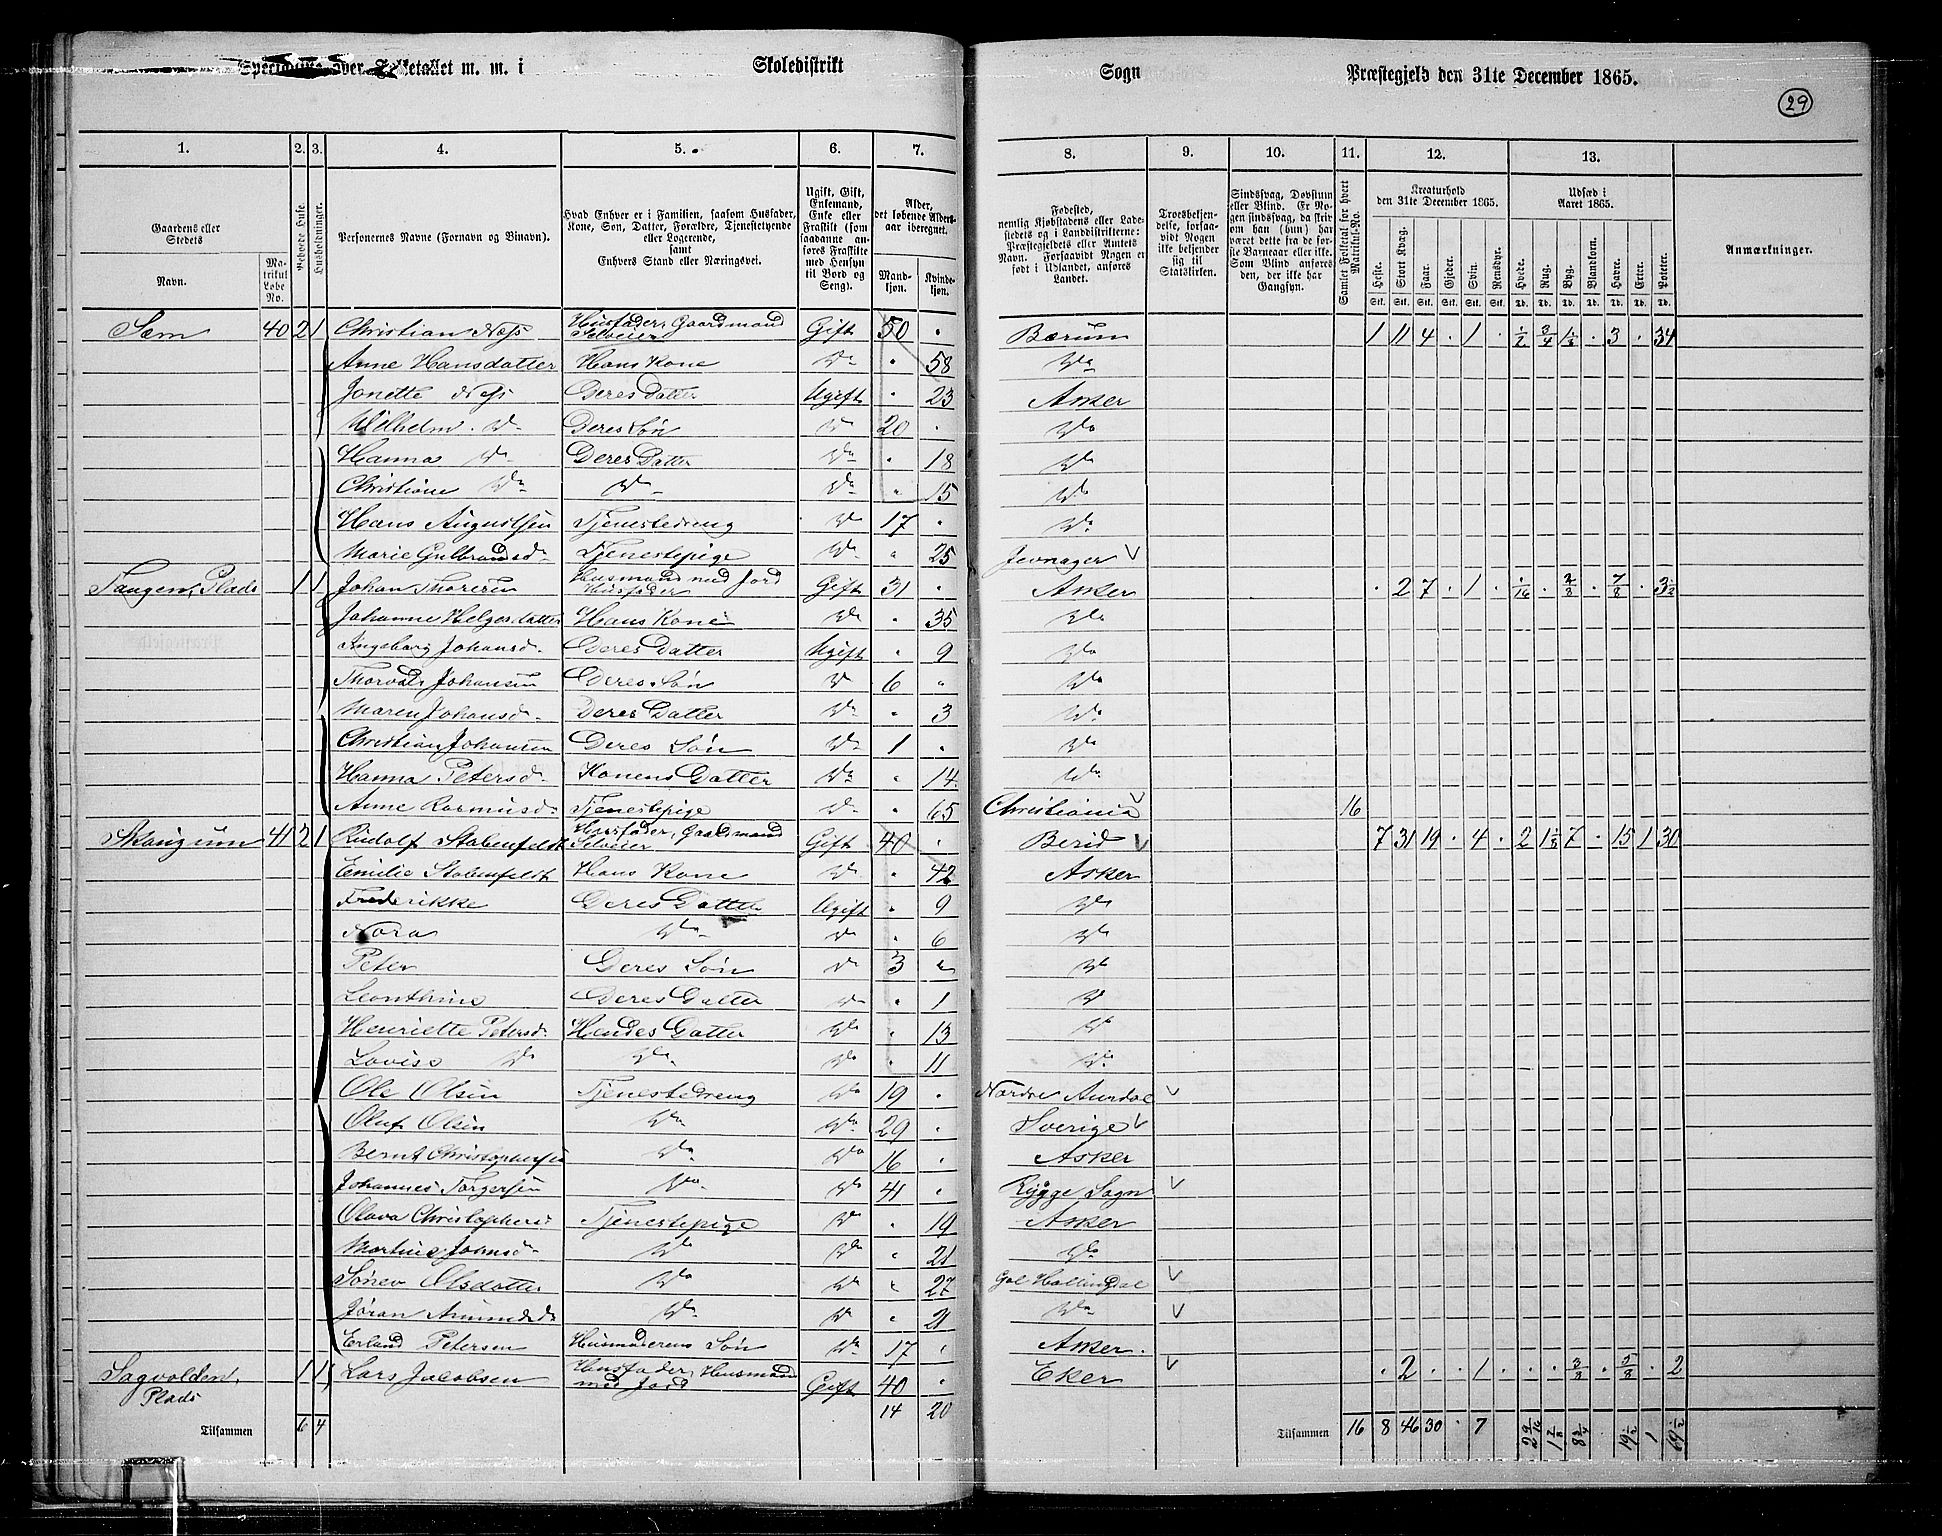 Specialliste over Folketallet m. m. i Skoledistrikt Sogn Præstegjeld den 31te December 1865.
29
1. 2. 3. 4. 5. 6. 7. 8. 9. 10. 11. 12. 13.
Gaardens eller Stedets
Navn.
Matrikul Løbe No.
Beboede Huse.
Husholdninger.
Personernes Navne (Fornavn og Binavn).
Hvad Enhver er i Familien, saasom Husfader, Kone, Søn, Datter, Forældre, Tjenestetyende eller Logerende, samt Enhvers Stand eller Næringsvei.
Ugift, Gift, Enkemand, Enke eller Fraskilt (som saadanne anføres Fraskilte med Hensyn til Bord og Seng).
Alder, det løbende Aldersaar iberegnet.
Mandkjøn. Kvindekjøn.
Fødested, nemlig Kjøbstadens eller Ladestedets og i Landdistrikterne: Præstegjeldets eller Amtets Navn. Forsaavidt Nogen er født i Udlandet, anføres Landet.
Troesbekjendelse, forsaavidt Nogen ikke bekjender sig til Statskirken.
Sindssvag, Døvstum eller Blind. Er Nogen sindssvag, da skrives om han (hun) har været dette fra de første Barneaar eller ikke. Som Blind anføres den, der ikke har Gangsyn.
Samlet Folketal for hvert Matrikul-No.
Kreaturhold den 31te December 1865.
Heste. Stort Kvæg. Faar. Gjeder. Svin. Rensdyr.
Udsæd i Aaret 1865.
Hvede. Rug. Byg. Blandkorn. Havre. Erter. Poteter.
Anmærkninger.
Sem 40 2 1 Christian Næss Husfader, Gaardmand Selveier Gift 50 " Bærum 1 11 4 . 1 . 1/2 3/4 1 1/2 . 3 . 34
Anne Hansdatter Hans Kone Do " 58 Do
Jonette Næss Deres Datter Ugift " 23 Asker
Wilhelm Do Deres Søn Do 20 " Do
Hanna Do Deres Datter Do " 18 Do
Christiane Do Do Do " 15 Do
Hans Augustsen Tjenestedreng Do 17 " Do
Marie Gulbrandsd. Tjenestepige Do " 25 Jevnager
Tangen, Plads 1 1 Johan Thoresen Husmand med Jord Husfader Gift 31 " Asker . 2 7 . 1 . 1/16 . 2/3 . 7/8 . 3 1/2
Johanne Helgesdatter Hans Kone Do " 35 Do
Ingeborg Johansd. Deres Datter Ugift " 9 Do
Thorvald Johansen Deres Søn Do 6 " Do
Maren Johansd. Deres Datter Do " 3 Do
Christian Johansen Deres Søn Do 1 " Do
Hanna Petersd. Konens Datter Do " 14 Do
Anne Rasmusd. Tjenestepige Do " 65 Christiania 16
Skaugum 41 2 1 Rudolf Stabenfeldt Husfader, Gaardmand Selveier Gift 40 " Berid 7 31 19 . 4 . 2 1 1/8 7 . 15 1 30
Emilie Stabenfeldt Hans Kone Do " 42 Asker
Frederikke Deres Datter Ugift " 9 Do
Nora Do Do " 6 Do
Peter Deres Søn Do 3 " Do
Leonthine Deres Datter Do " 1 Do
Henriette Petersd. Hendes Datter Do " 13 Do
Lovise Do Do Do " 11 Do
Ole Olsen Tjenestedreng Do 19 " Nordre Aurdal
Oluf Olsen Do Do 29 " Sverige
Bernt Christophersen Do Do 16 " Asker
Johannes Torgersen Do Do 41 " Rygge Sogn
Olava Christophers Tjenestepige Do " 19 Asker
Martine Johnsd. Do Do " 21 Do
Olsdatter Do Do " 27 Gol Hallingdal
Jøran Do Do " 21 Do
Erland Petersen Husmoderens Søn Do 17 " Asker
Sagvolden, Plads 1 1 Lars Jacobsen Husfader, Husmand med Jord Gift 40 " Eker . 2 . . 1 . . . 3/8 . 5/8 . 2
Tilsammen 6 4 14 20 Tilsammen 16 8 46 30 . 7 2 9/16 1 7/8 8 3/4 19 1/2 1 69 1/2